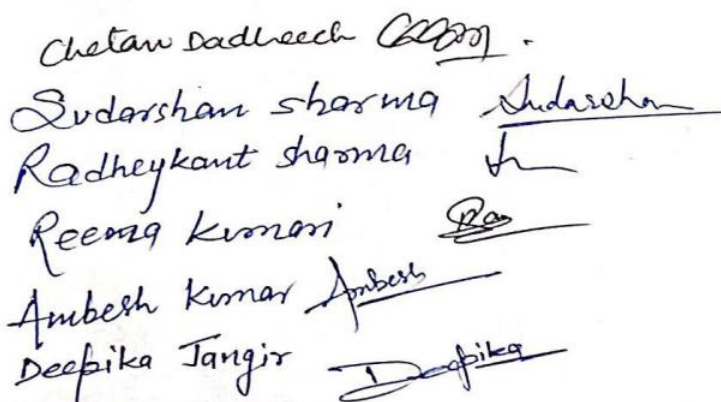 Chetan Dadheech
Sudarshan Sharma Sudarshan
Radheykant Sharma
Reema Kumari
Ambesh Kumar Ambesh
Deepika Jangir Deepika